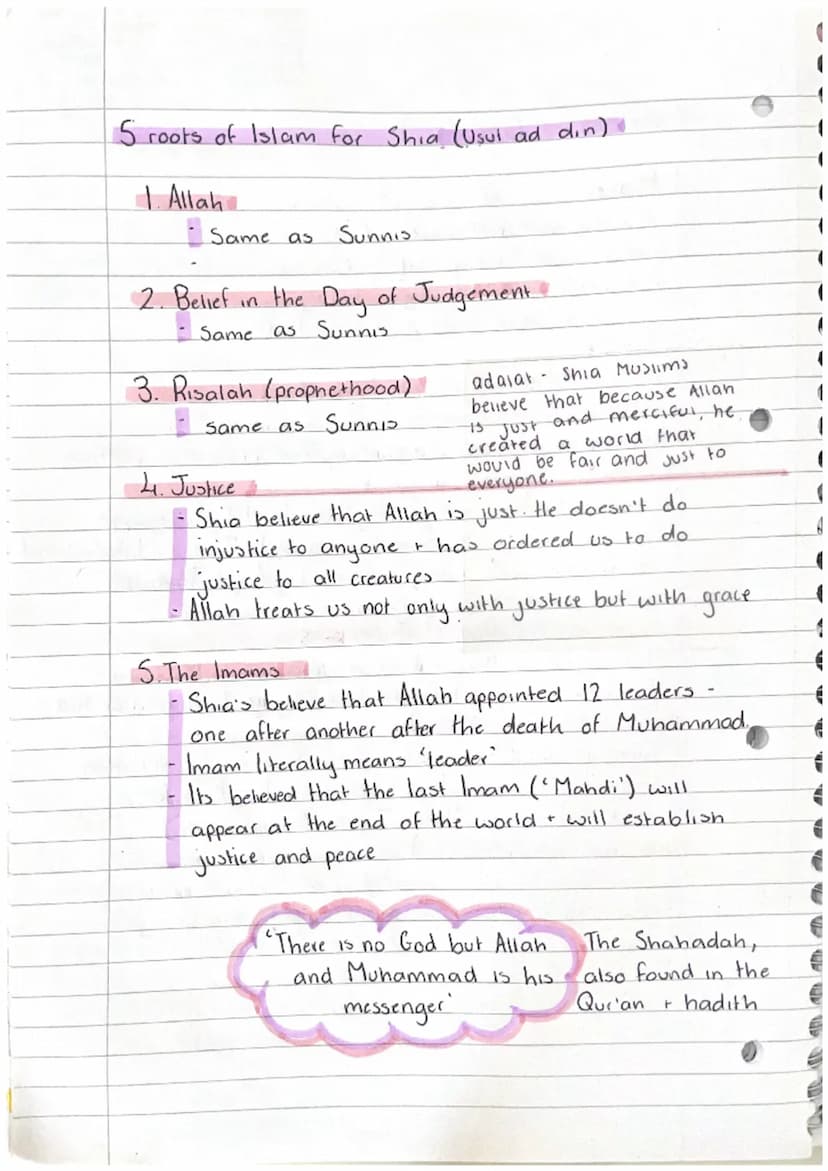 5 roots of Islam for Shia (Usul ad din)
1. Allah
- Same as Sunnis
-
2. Belief in the Day of Judgement
- Same as Sunnis
3. Risalah (prophethood)
- same as Sunnis
adalat - Shia Muslims
believe that because Allah
is just and merciful, he
created a world that
would be fair and just to
everyone.
4. Justice
- Shia believe that Allah is just. He doesn't do
injustice to anyone + has ordered us to do
justice to all creatures
- Allah treats us not only with justice but with grace
5. The Imams
- Shia's believe that Allah appointed 12 leaders -
one after another after the death of Muhammad.
- Imam literally means 'leader'
- Its believed that the last Imam ('Mahdi') will
appear at the end of the world + will establish
justice and peace
'There is no God but Allah
and Muhammad is his
messenger'
The Shahadah,
also found in the
Qur'an + hadith